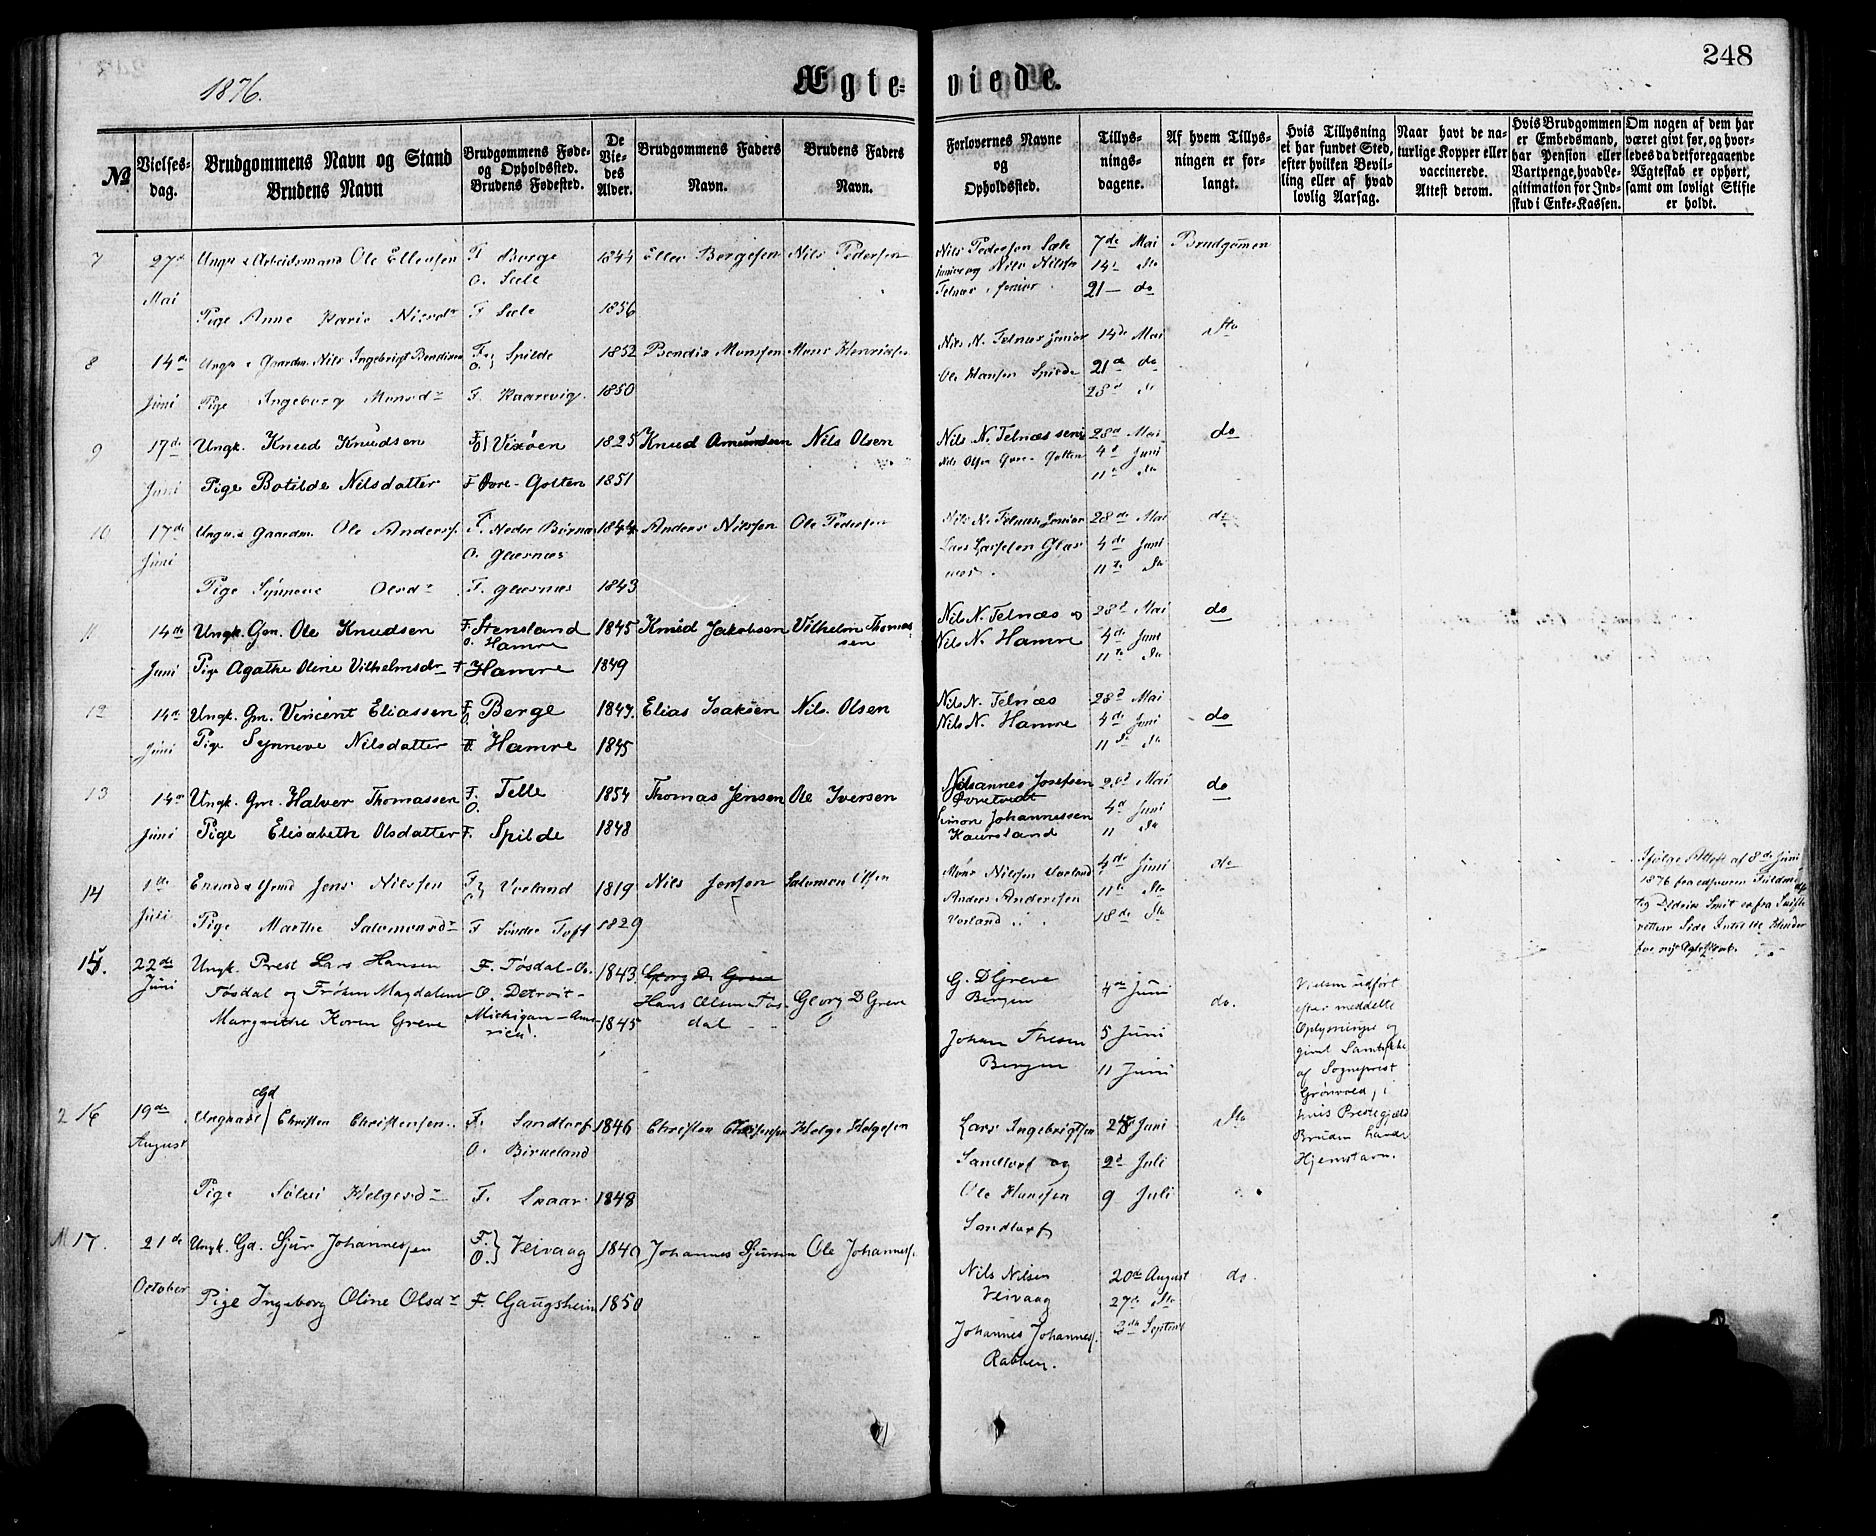 248
1876.
Ægte= viede.
№
Vielses-
dag.
Brudgommens Navn og Stand
Brudens Navn
Brudgommens Føde-
og Opholdssted.
Brudens Fødested.
De
Vie-
des
Alder.
Brudgommens Faders
Navn.
Brudens Faders
Navn.
Forlovernes Navne
og
Opholdssted.
Tillys-
nings-
dagene.
Af hvem Tillys-
ningen er for-
langt.
Hvis Tillysning
ei har fundet Sted,
efter hvilken Bevil-
ling eller af hvad
lovlig Aarsag.
Naar havt de na-
turlige Kopper eller
vaccinerede.
Attest derom.
Hvis Brudgommen
er Embedsmand,
har Pension eller
Vartpenge, hvad Le-
gitimation for Ind-
skud i Enke-Kassen.
Om nogen af dem har
været givt før, og hvor-
ledes da det foregaaende
Ægteskab er ophørt,
samt om lovligt Skifte
er holdt.
7 27d Mai
Ungk & Arbeidsmand Ole Ellensen F. Berge 1844 Eller Børgesen Nils Pedersen
O. Sæle
Pige Anne Karie Nilsdr F Sæle 1856
Nils Pedersen Sæle 7de Mai Brudgommen
junior og Nils Nilsen 14d do
Telnæs, senior 21 - do
8 14de Juni
Ungk & Gaardm. Nils Ingebrigt Bendixen F. O. Spilde 1852 Bendix Monsen Mons Henriksen
Pige Ingeborg Monsdr F. Kaarevig. 1850
Nils N. Telnæs junior 14de Mai do
Ole Hansen Spilde 21de do
28d do
9 17de Juni
Ungk. Knud Knudsen F O Vixøen 1825 Knud Amundsen Nils Olsen
Pige Botilde Nilsdatter F Øvre-Golten 1851
Nils N. Telnæs seni 28d Mai do
Nils Olsen Øvre-Golten 4d Juni
11te do
10 17de Juni
Ungk. & Gaardm. Ole Anders. F. Nedre Børnæs 1844 Anders Nilssen Ole Pedersen
O. Glæsnæs
Pige Synneve Olsdr F. Glæsnæs 1843
Nils N. Telnæs, Senior 28de Mai do
Lars Larssen Glæs 4de Juni
næs. 11te do
11 14de Juni
Ungk. Gm. Ole Knudsen F. Stensland 1845 Knud Jakobsen Vilhelm Thomas
O. Hamre sen
Pige Agathe Oline Vilhelmsdr F Hamre 1849
Nils N. Telnæs og 28d Mai do
Nils N. Hamre 4de Juni
11te do
12 14d Juni
Ungk. Gm. Vincent Eliassen F. O. Berge 1847. Elias Isaksen Nils Olsen
Pige Synneve Nilsdatter F. Hamre 1845
Nils N. Telnæs 28d Mai
Nils N. Hamre 4de Juni do
11 do
13 14de Juni
Ungk. Gm. Halver Thomassen F. O. Telle 1854 Thomas Jensen Ole Iversen
Pige Elisabeth Olsdatter F. Spilde 1848
Johannes Josefsen 28d Mai do
Øvretvedt 4d Juni
Simon Johannessen
Kaursland 11 do
14 1ste Juli
Jens Nilssen F. O. Vorland 1819 Nils Jensen Salomon Olsen
Pige Marthe Salomonsdr F Søndre Toft 1829
Mons Nilssen Vorland 4de Juni do
Anders Anderssen 11te do
Vorland 18de do
Ifølge Attest af 8de Juni
1876 fra
15. 22de Juni
Ungk. Prest Lars Hansen F. Tøsdal- 1843. Georg D. Greve
Tøsdal og Frøken Magdalene O. Detroit- Hans Olsen Tøs- Georg D Greve
Margrethe Koren Greve Michigan-Ame- 1845 dal
rica!
G. D Greve 4de Juni do.
Bergen
Johan Thesen 5 Juni
Bergen 11 Juni
Vielsen udført
efter meddelte
Oplysninger og
givet Samtykke
af Sogneprest
Grønvold, i
hvis Prestegjæld
Bruden havde
Hjemstavn.
2 16 19de August
Gd
Ungkarl Christen Christensen F. Sandtorf 1846 Christen Christensen Helge Helgesen
O. Birkeland
Pige Sølvi Helgesdr F. Skaar 1848
Lars Ingebrigtsen 25 Juni do
Sandtorf og 2d Juli
Ole Hanssen 9 Juli
Sandtorf
17. 21de October
Ungk. Gd. Sjur Johannessen F. O. Veivaag 1840 Johannes Sjursen Ole Johanness.
Pige Ingeborg Oline Olsdr F. Gaugsheim 1850
Nils Nilsen 20de August do.
Veivaag 27de do
Johannes Johanness. 3de Septemb
Rabben.